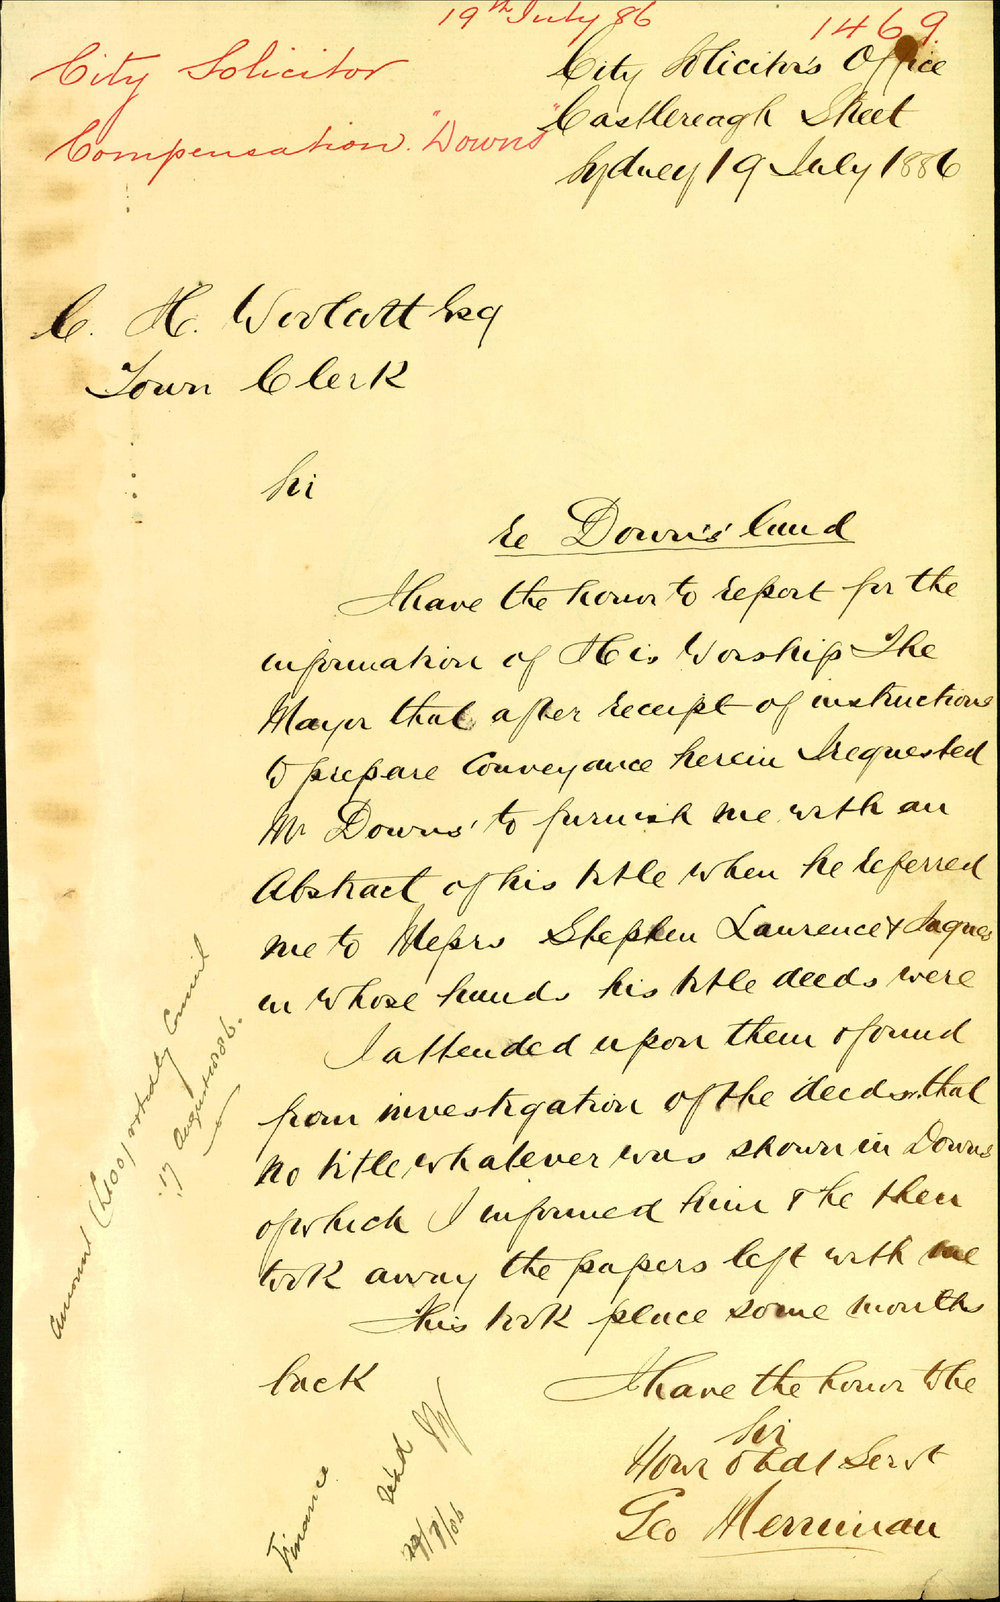 19th July 86
1469.
City Solicitor
Compensation. "Downs"
City Solicitor's Office
Castlereagh Street
Sydney 19 July 1886
C. H. Woolcott Esq
Town Clerk
Sir
re Downs's land
I have the honor to report for the
information of His Worship The
Mayor that after receipt of instructions
to prepare Conveyance herein I requested
Mr Downs' to furnish me with an
Abstract of his title when he referred
me to Messrs Stephen Laurence & Jaques
in whose hands his title deeds were
I attended upon them & found
from investigation of the deeds that
no title whatever was shown in Downs
of which I informed him & he then
took away the papers left with me
This took place some months
back
I have the honor to be
Sir
Your Obdt Servt
Geo Merriman
Amount (£100) voted by Council
17 August 1886.
Finance